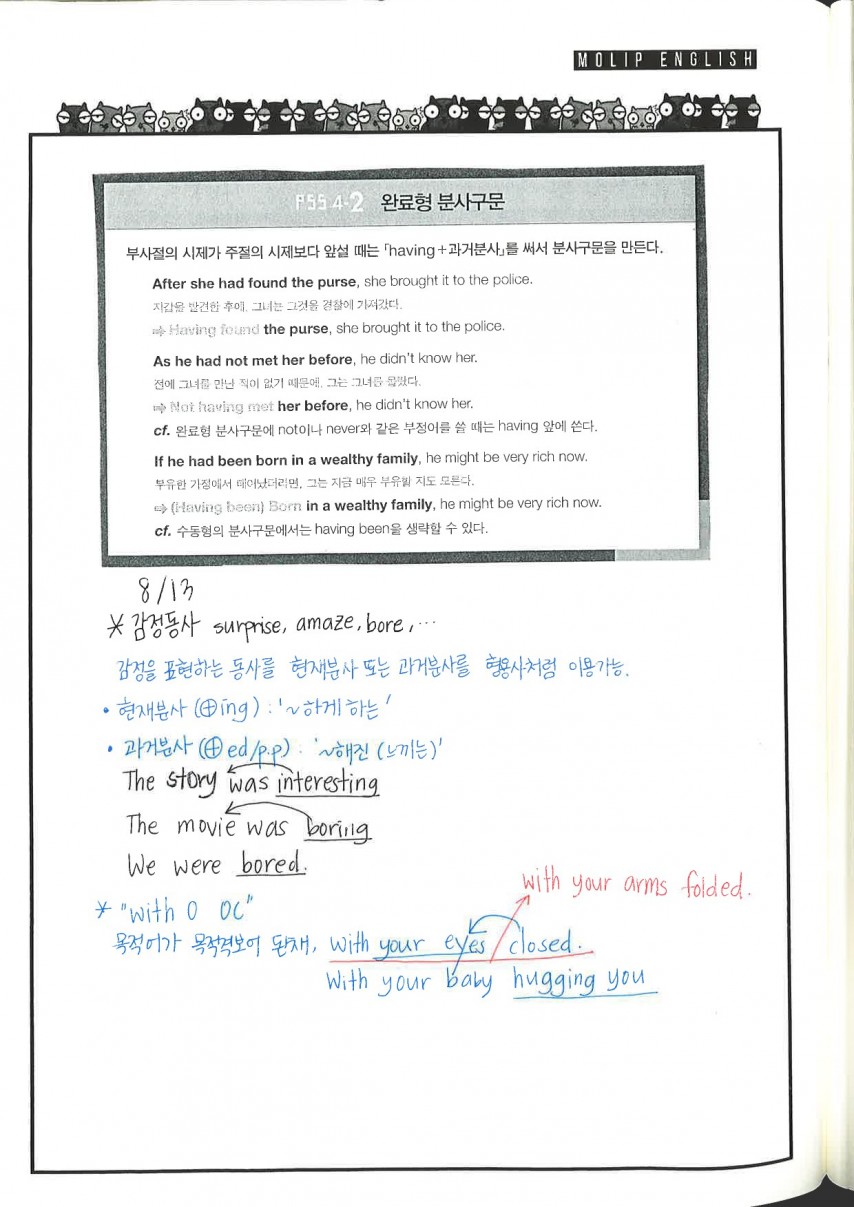 MOLIP ENGLISH
PSS 4-2 완료형 분사구문
부사절의 시제가 주절의 시제보다 앞설 때는 「having+과거분사」를 써서 분사구문을 만든다.
After she had found the purse, she brought it to the police.
지갑을 발견한 후에, 그녀는 그것을 경찰에 가져갔다.
⇨ Having found the purse, she brought it to the police.
As he had not met her before, he didn't know her.
전에 그녀를 만난 적이 없기 때문에, 그는 그녀를 몰랐다.
⇨ Not having met her before, he didn't know her.
cf. 완료형 분사구문에 not이나 never와 같은 부정어를 쓸 때는 having 앞에 쓴다.
If he had been born in a wealthy family, he might be very rich now.
부유한 가정에서 태어났더라면, 그는 지금 매우 부유할 지도 모른다.
⇨ (Having been) Born in a wealthy family, he might be very rich now.
cf. 수동형의 분사구문에서는 having been을 생략할 수 있다.
8/13
* 감정동사 surprise, amaze, bore, …
감정을 표현하는 동사를 현재분사 또는 과거분사를 형용사처럼 이용가능.
• 현재분사 (⊕ing) : '~하게 하는'
• 과거분사 (⊕ed/p.p) : '~해진 (느끼는)'
The story was interesting
The movie was boring
We were bored.
with your arms folded.
* "with O OC"
목적어가 목적격보어 된채, with your eyes closed.
With your baby hugging you